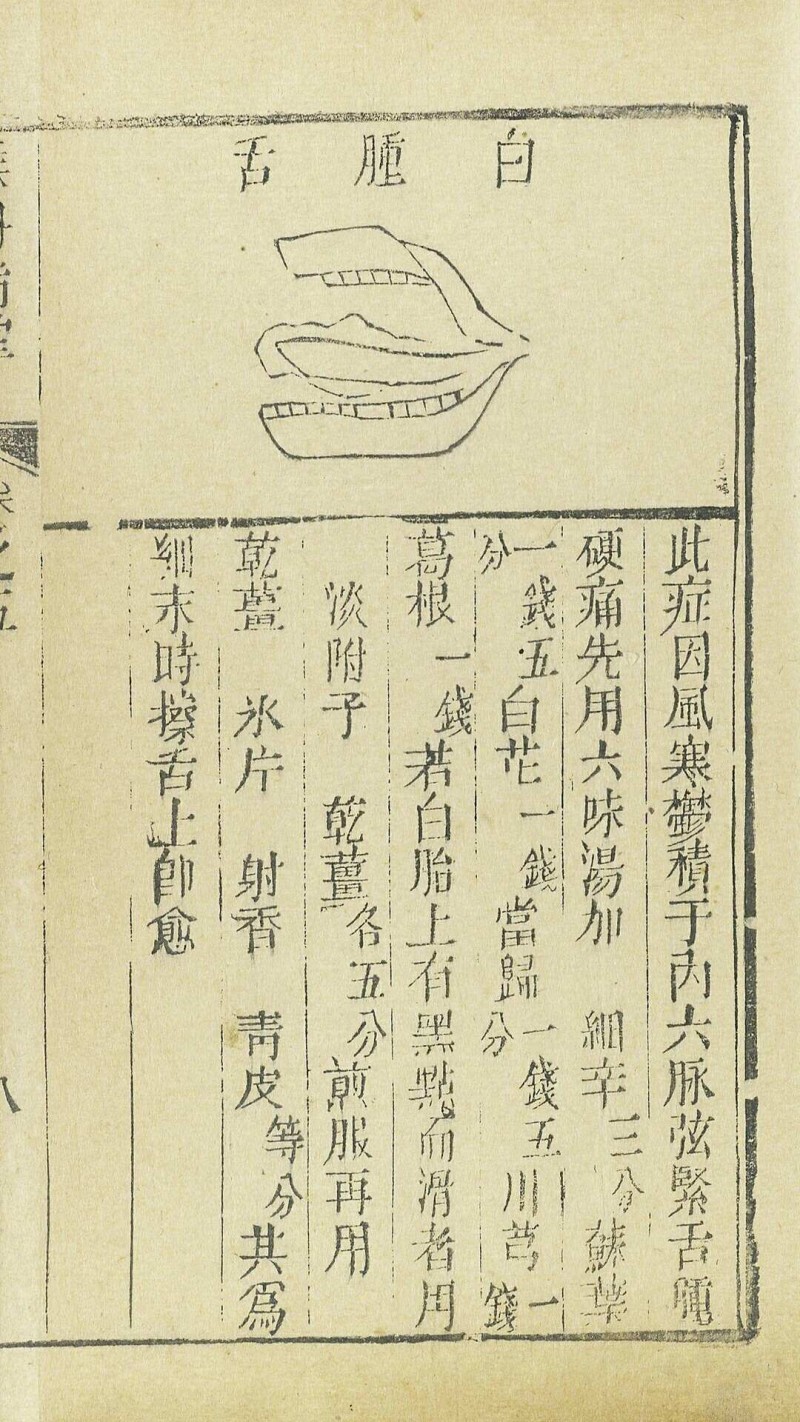 白腫舌
此症因風寒鬱積于內六脉弦緊舌腫
硬痛先用六味湯加 細辛三分蘇葉
一錢五分白芷一錢當歸一錢五分川芎一錢
葛根一錢若白胎上有黑點而滑者用
淡附子 乾薑各五分煎服再用
乾薑 氷片 射香 青皮等分共爲
細末時擦舌上卽愈
卷之五
八